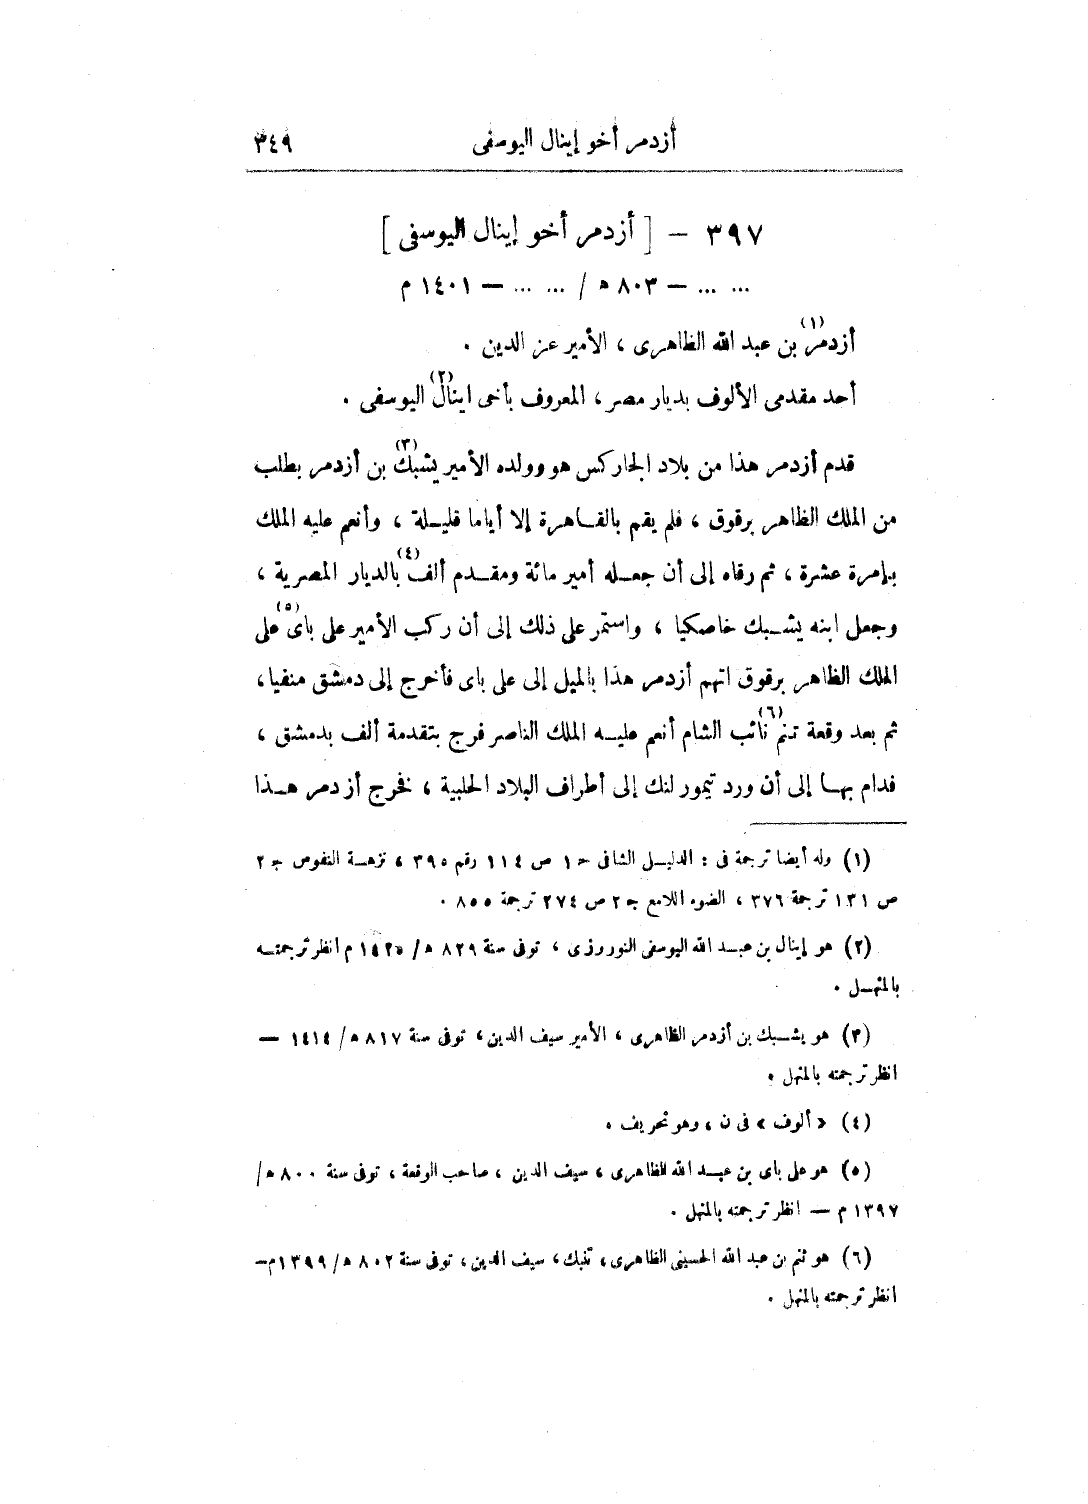 أزدمر أخو إينال اليوسفى ٣٤٩
٣٩٧ – [ أزدمر أخو إينال اليوسفى ]
... ... – ٨٠٣ ه / ... ... – ١٤٠١ م
أزدمر(١) بن عبد الله الظاهرى ، الأمير عز الدين .
أحد مقدمى الألوف بديار مصر ، المعروف بأخى اينال(٢) اليوسفى .
قدم أزدمر هذا من بلاد الجاركس هو وولده الأمير يشبك(٣) بن أزدمر بطلب
من الملك الظاهر برقوق ، فلم يقم بالقاهرة إلا أياما قليلة ، وأنعم عليه الملك
بإمرة عشرة ، ثم رقاه إلى أن جعله أمير مائة ومقدم ألف(٤) بالديار المصرية ،
وجعل ابنه يشبك خاصكيا ، واستمر على ذلك إلى أن ركب الأمير على باى(٥) على
الملك الظاهر برقوق اتهم أزدمر هذا بالميل إلى على باى فأخرج إلى دمشق منفيا ،
ثم بعد وقعة تنم(٦) نائب الشام أنعم عليه الملك الناصر فرج بتقدمة ألف بدمشق ،
فدام بها إلى أن ورد تيمور لنك إلى أطراف البلاد الحلبية ، فخرج أزدمر هذا
(١) وله أيضا ترجمة فى : الدليل الشافى ج ١ ص ١١٤ رقم ٣٩٥ ، نزهة النفوس ج ٢
ص ١٣١ ترجمة ٣٧٦ ، الضوء اللامع ج ٢ ص ٢٧٤ ترجمة ٨٥٥ .
(٢) هو إينال بن عبد الله اليوسفى النوروزى ، توفى سنة ٨٢٩ ه / ١٤٢٥ م انظر ترجمته
بالمنهل .
(٣) هو يشبك بن أزدمر الظاهرى ، الأمير سيف الدين ، توفى سنة ٨١٧ ه / ١٤١٤ —
انظر ترجمته بالمنهل .
(٤) « ألوف » فى ن ، وهو تحريف .
(٥) هو على باى بن عبد الله الظاهرى ، سيف الدين ، صاحب الوقعة ، توفى سنة ٨٠٠ ه /
١٣٩٧ م — انظر ترجمته بالمنهل .
(٦) هو تنم بن عبد الله الحسينى الظاهرى ، تنبك ، سيف الدين ، توفى سنة ٨٠٢ ه / ١٣٩٩ م —
انظر ترجمته بالمنهل .